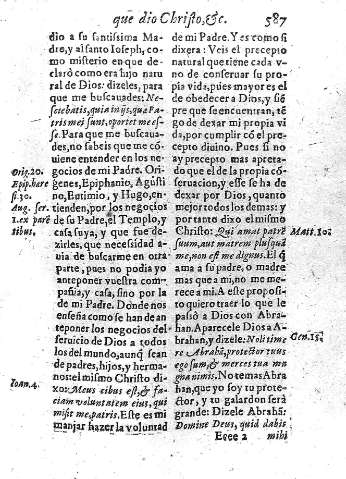 que dio Christo,&c.
587
dio a su santissima Ma-
dre, y al santo Ioseph, co-
mo misterio en que de-
claró como era hijo natu
ral de Dios: dizeles, para
que me buscauades: Ne-
sciebatis, quia in ijs, quæ Pa-
tris mei sunt, oportet me es-
se. Para que me buscaua-
des, no sabeis que me có-
uiene entender en los nego
cios de mi Padre. Ori-
genes, Epiphanio, Agústi
no, Eutimio, y Hugo, en-
tienden, por los negocios
de su Padre, el Templo, y
casa suya, y que fue de-
zirles, que necessidad a-
uia de buscarme en otra
parte, pues no podia yo
anteponer vuestra com-
pañia, y casa, sino por la
de mi Padre. Donde nos
enseña como se han de an
teponer los negocios del
seruicio de Dios à todos
los del mundo, aunq̃ sean
de padres, hijos, y herma-
nos: el mismo Christo di-
xo: Meus cibus est, & fa-
ciam voluntatem eius, qui
misit me, patris. Este es mi
manjar hazer la voluntad
Orig. 20.
Aug. ser.
1. ex parē
tibus.
Ioan. 4.
de mi Padre. Y es como si
dixera: Veis el precepto
natural que tiene cada v-
no de conseruar su pro-
pia vida, pues mayor es el
de obedecer a Dios, y siẽ
pre que se encuentran, tẽ
go de dexar mi propia vi
da, por cumplir có el pre-
cepto diuino. Pues si no
ay precepto mas apreta-
do que el de la propia có
seruacion, y esse se ha de
dexar por Dios, quanto
mejor todos los demas: y
por tanto dixo el mismo
Christo: Qui amat patrẽ
suum, aut matrem plusquá
me, non est me dignus. El q̃
ama a su padre, o madre
mas que a mi, no me me-
rece a mi. A este proposi-
to quiero traer lo que le
passò a Dios con Abra-
han. Aparecele Dios a A-
brahan, y dizele: Noli time
re Abrahã, protector tuus
ego sum, & merces tua ma
gna nimis. No temas Abra
han, que yo soy tu prote-
ctor, y tu galardon será
grande: Dizele Abrahã:
Domine Deus, quid dabis
Matt. 10.
Gen. 15.
Eeee 2
mihi